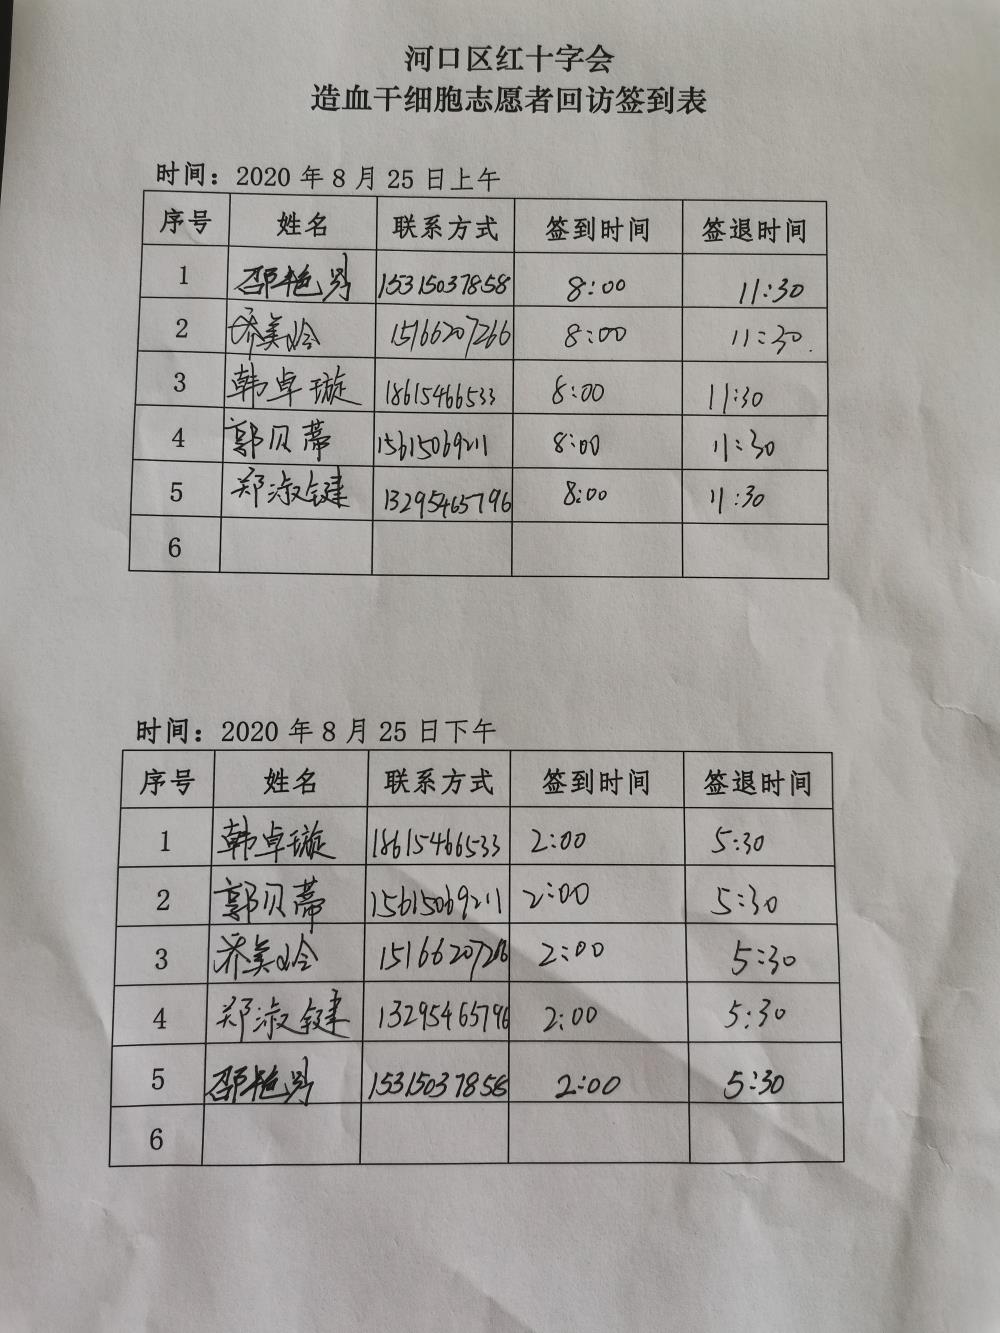 河口区红十字会
造血干细胞志愿者回访签到表
时间：2020 年 8 月 25 日上午
序号 姓名 联系方式 签到时间 签退时间
1 15315037858 8:00 11:30
2 15166207266 8:00 11:30
3 韩卓璇 18615466533 8:00 11:30
4 郭贝蒂 15615069211 8:00 11:30
5 郑淑键 13295465796 8:00 11:30
6
时间：2020 年 8 月 25 日下午
序号 姓名 联系方式 签到时间 签退时间
1 韩卓璇 18615466533 2:00 5:30
2 郭贝蒂 15615069211 2:00 5:30
3 2:00 5:30
4 郑淑键 13295465796 2:00 5:30
5 15315037858 2:00 5:30
6